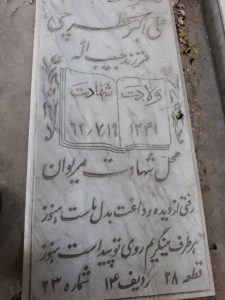 علی اکبر
فرزند حبیب اله
ولادت شهادت
۱۳۴۱ ۶۲/۷/۱۹
محل شهادت مریوان
رفتی از دیده و داغت بدل ماست هنوز
هر طرف مینگریم روی تو پیداست هنوز
قطعه ۲۸ ردیف ۱۴ شماره ۲۳